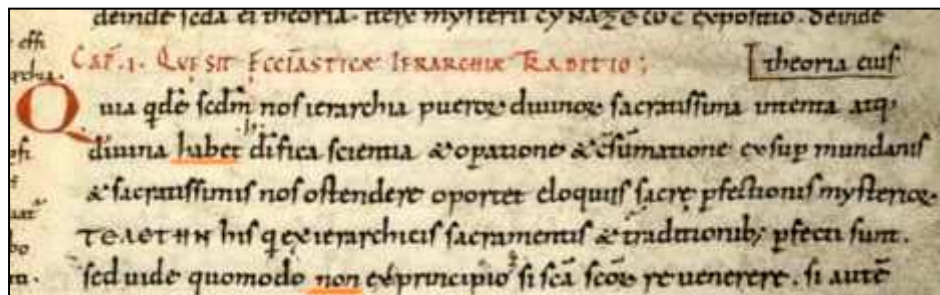 deinde seda ei theoria. itere mysterii CYNAZEωC expositio. deinde
CAP̄. I. QVĘ SIT ECCĪASTICÆ IERARCHIÆ TRADITIO; theoria eius
Quia qdē scdm̄ nos ierarchia pueroꝝ diuinoꝝ sacratissima intenta atq;
diuina habet dīfica scientia & opatione & c̄sūmatione ex sup mundanis
& sacratissimis nos ostendere oportet eloquiis sacrę pfectionis mysterioꝝ
TEΛETHN his q ex ierarchicis sacramentis & traditionib; pfecti sunt.
sed uide quomodo non ex principio si scā scōꝝ re uenerere. si autē